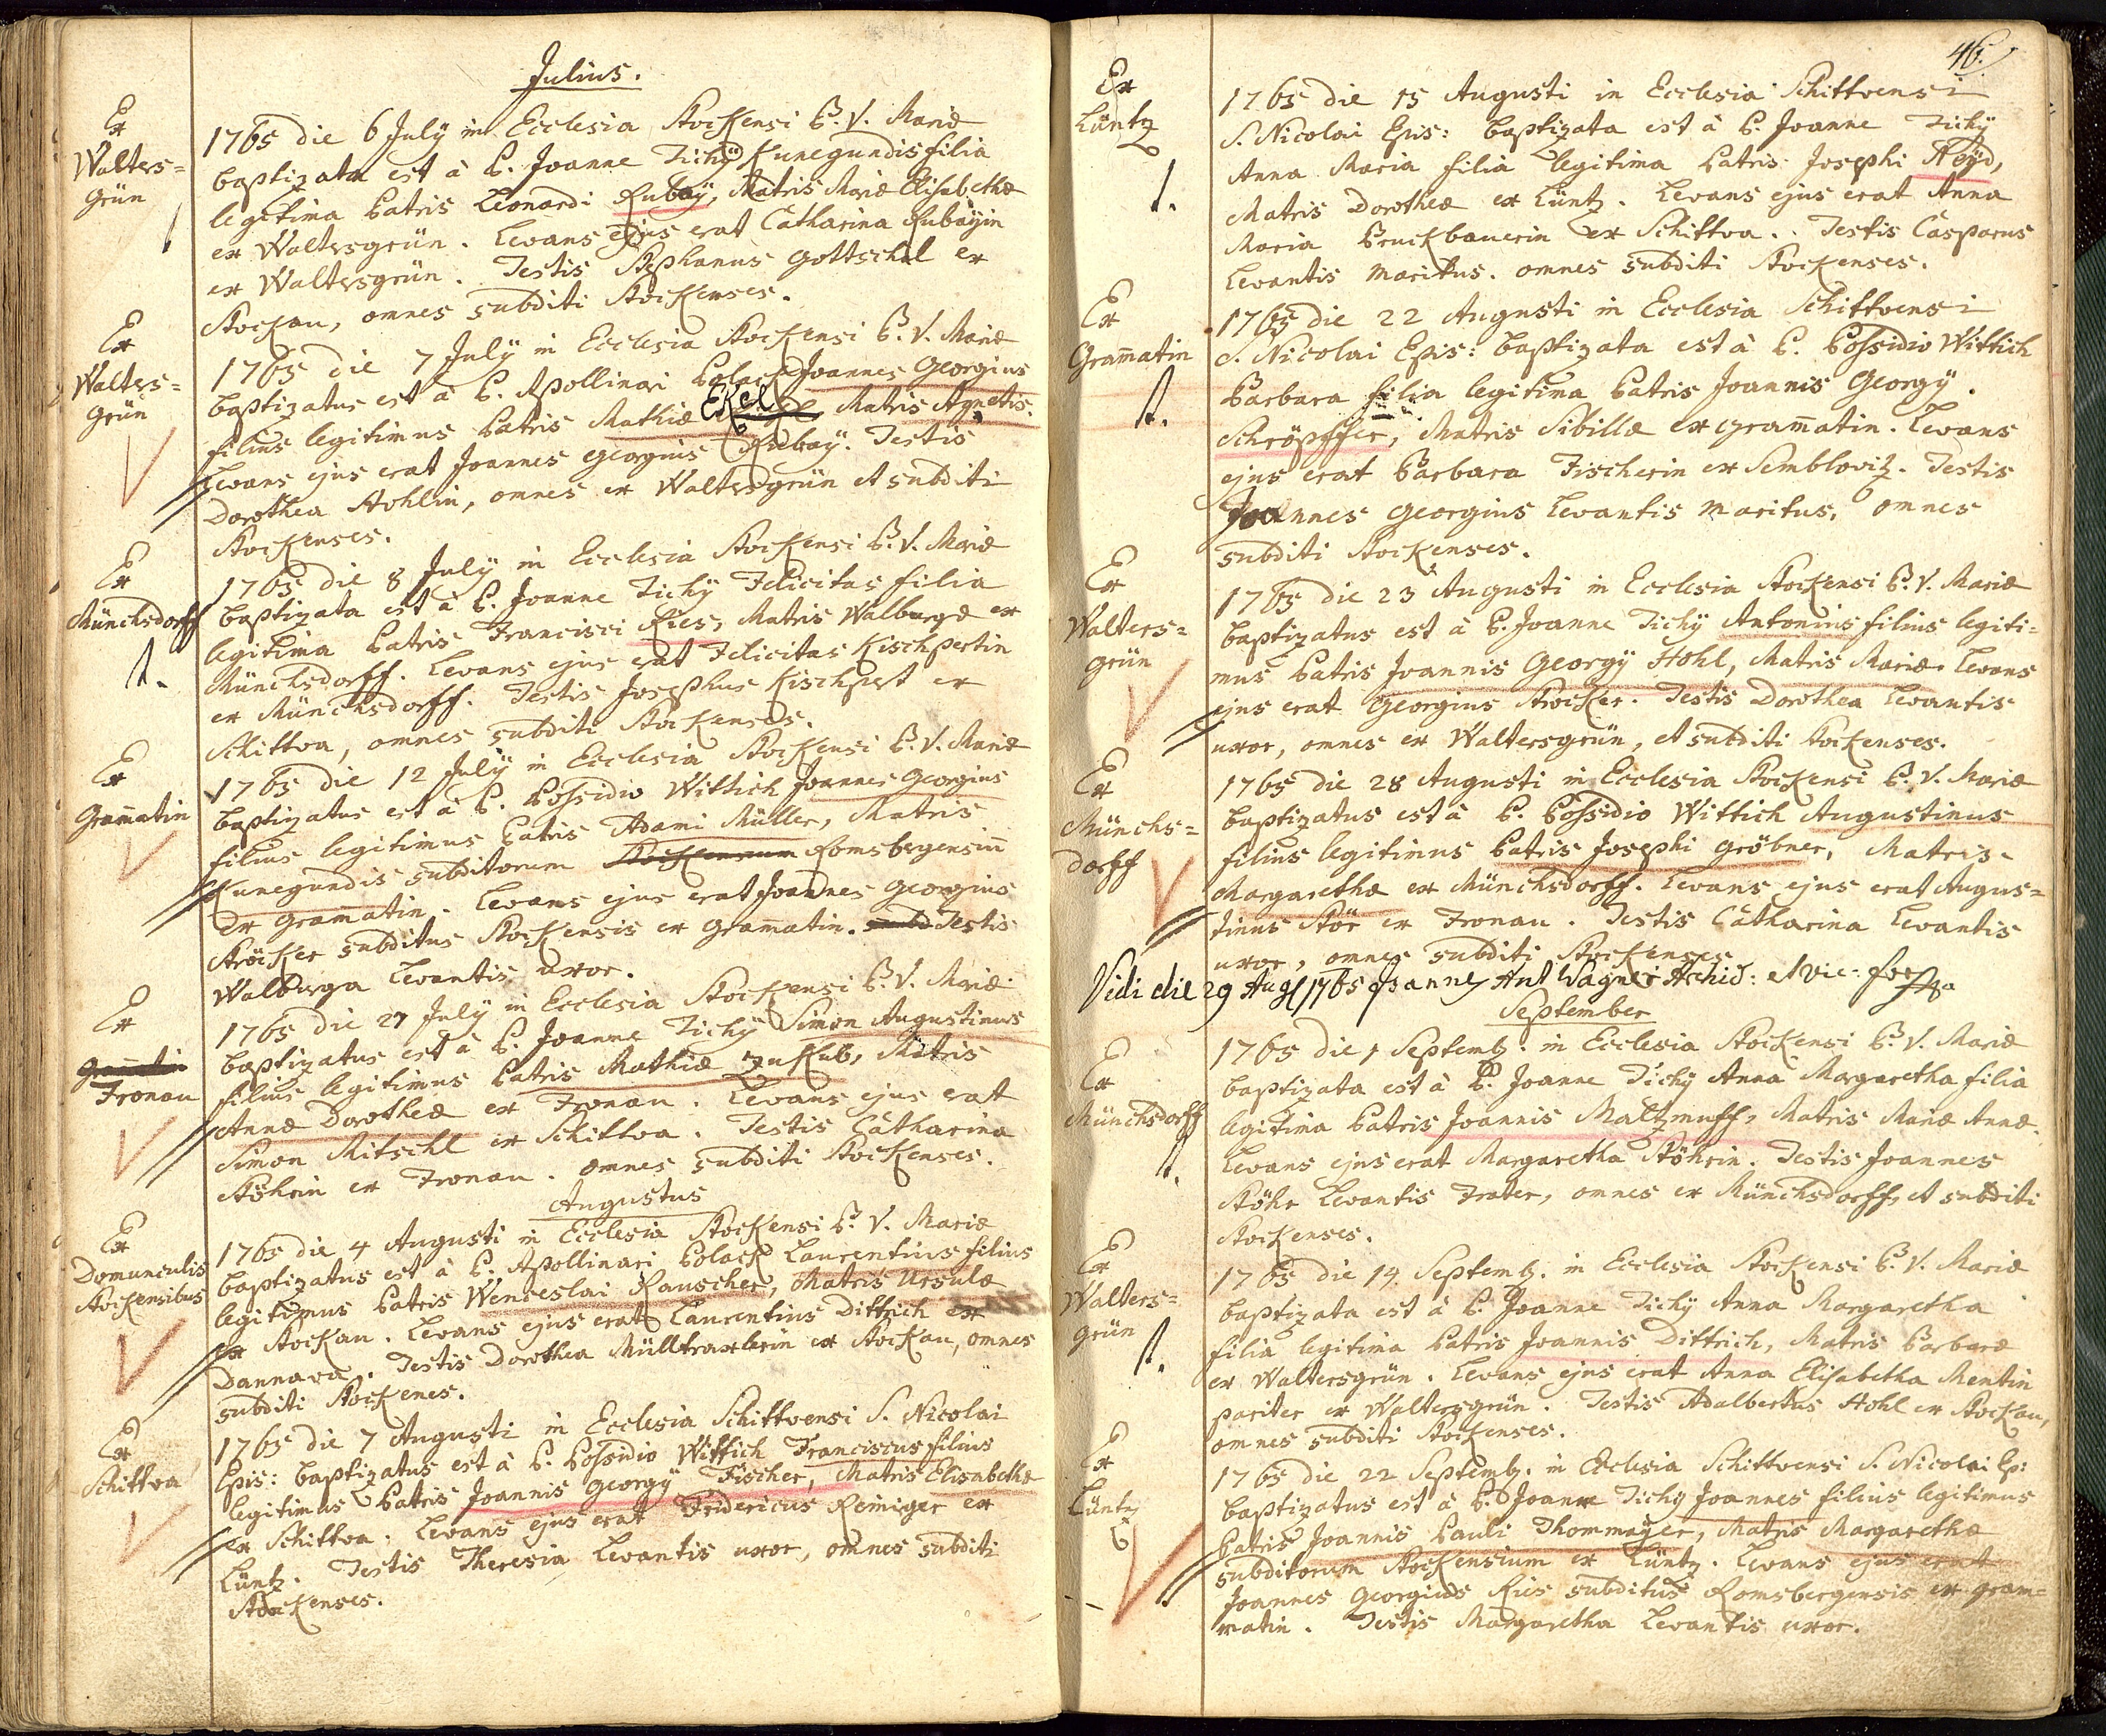 Julius.
Ex
Walters=
grün
1765 die 6 July in Ecclesia Stockensi B. V. Mariæ
baptizata est à P. Joanne Tichÿ Kunegundis filia
legitima Patris Leonardi Rubaÿ, Matris Mariæ Elisabethæ
ex Waltersgrün. Levans ejus erat Catharina Rubaÿin
ex Waltersgrün. Testis Stephanus Gottschal ex
Stockau, omnes subditi Stockenses.
Ex
Walters=
grün
1765 die 7 July in Ecclesia Stockensi B. V. Mariæ
baptizatus est à P. Apollinari Polack Joannes Georgius
filius legitimus Patris Mathiæ Ekel Matris Agnetis.
Levans ejus erat Joannes Georgius Rubaÿ. Testis
Dorothea Hohlin, omnes ex Waltersgrün et subditi
Stockenses.
Ex
Münchsdorff
1765 die 8 July in Ecclesia Stockensi B. V. Mariæ
baptizata est à P. Joanne Tichÿ Felicitas filia
legitima Patris Francisci Ries, Matris Walburgæ ex
Münchsdorff. Levans ejus erat Felicitas Kischpertin
ex Münchsdorff. Testis Josephus Kischpert ex
Schittwa, omnes subditi Stockenses.
Ex
Gram̄atin
1765 die 12 July in Ecclesia Stockensi B. V. Mariæ
baptizatus est à P. Possidio Wittich Joannes Georgius
filius legitimus Patris Adami Müller, Matris
Kunegundis subditorum Stockensium Romsbergensiū
ex Gram̄atin. Levans ejus erat Joannes Georgius
Ströcker subditus Stockensis ex Gram̄atin. Testis
Walburga Levantis uxor.
Ex
Gram̄atin
Fronau
1765 die 27 July in Ecclesia Stockensi B. V. Mariæ
baptizatus est à P. Joanne Tichÿ Simon Augustinus
filius legitimus Patris Mathiæ Zukub, Matris
Annæ Dorotheæ ex Fronau. Levans ejus erat
Simon Mitschl ex Schittwa. Testis Catharina
Stöhrin ex Fronau. omnes subditi Stockenses.
Augustus
Ex
Domunculis
Stockensibus
1765 die 4 Augusti in Ecclesia Stockensi B. V. Mariæ
baptizatus est à P. Apollinari Polack Laurentius filius
legitimus Patris Wenceslai Rauscher, Matris Ursulæ
ex Stockau. Levans ejus erat Laurentius Dittrich ex
Dannawa. Testis Dorothea Mülltraxlerin ex Stockau, omnes
subditi Stockenes.
Ex
Schittwa
1765 die 7 Augusti in Ecclesia Schittwensi S. Nicolai
Epis: baptizatus est à P. Possidio Wittich Franciscus filius
legitimus Patris Joannis Georgÿ Fischer, Matris Elisabethæ
ex Schittwa. Levans ejus erat Fridericus Reimiger ex
Lüntz. Testis Theresia Levantis uxor, omnes subditi
Stockenses.
46.
Ex
Lüntz
1765 die 15 Augusti in Ecclesia Schittwensi
S. Nicolai Epis: baptizata est à P. Joanne Tichÿ
Anna Maria filia legitima Patris Josephi Heÿd,
Matris Dorotheæ ex Lüntz. Levans ejus erat Anna
Maria Pruckbauerin ex Schittwa. Testis Casparus
Levantis maritus. omnes subditi Stockenses.
Ex
Gram̄atin
1765 die 22 Augusti in Ecclesia Schittwensi
S. Nicolai Epis: baptizata est à P. Possidio Wittich
Barbara filia legitima Patris Joannis Georgÿ
Schröpffer, Matris Sibillæ ex Gram̄atin. Levans
ejus erat Barbara Fischerin ex Semblowitz. Testis
Joannes Georgius Levantis maritus, omnes
subditi Stockenses.
Ex
Walters=
grün
1765 die 23 Augusti in Ecclesia Stockensi B. V. Mariæ
baptizatus est à P. Joanne Tichÿ Antonius filius legiti=
mus Patris Joannis Georgÿ Hohl, Matris Mariæ. Levans
ejus erat Georgius Strocker. Testis Dorothea Levantis
uxor, omnes ex Waltersgrün, et subditi Stockenses.
Ex
Münchs=
dorff
1765 die 28 Augusti in Ecclesia Stockensi B. V. Mariæ
baptizatus est à P. Possidio Wittich Augustinus
filius legitimus Patris Josephi Gröbner, Matris
Margarethæ ex Münchsdorff. Levans ejus erat Augus=
tinus Stör ex Fronau. Testis Catharina Levantis
uxor, omnes subditi Stockenses
Vidi die 29 Aug 1765 Joannes Ant Wagner Archid: et vic:
September
Ex
Münchsdorff
1765 die 1 Septemb. in Ecclesia Stockensi B. V. Mariæ
baptizata est à P. Joanne Tichÿ Anna Margaretha filia
legitima Patris Joannis Maltzmuff, Matris Mariæ Annæ.
Levans ejus erat Margaretha Stöhrin. Testis Joannes
Stöhr Levantis Frater, omnes ex Münchsdorff, et subditi
Stockenses.
Ex
Walters=
grün
1765 die 14. Septemb. in Ecclesia Stockensi B. V. Mariæ
baptizata est à P. Joanne Tichÿ Anna Margaretha
filia legitima Patris Joannis Dittrich, Matris Barbaræ
ex Waltersgrün. Levans ejus erat Anna Elisabetha Mentin
pariter ex Waltersgrün. Testis Adalbertus Hohl ex Stockau,
omnes subditi Stockenses.
Ex
Lüntz
1765 die 22 Septemb. in Ecclesia Schittwensi S. Nicolai Ep:
baptizatus est à P. Joanne Tichÿ Joannes filius legitimus
Patris Joannis Pauli Thommaÿer, Matris Margarethæ
subditorum Stockensium ex Lüntz. Levans ejus erat
Joannes Georgius Ries subditus Romsbergensis ex Gram=
matin. Testis Margaretha Levantis uxor.